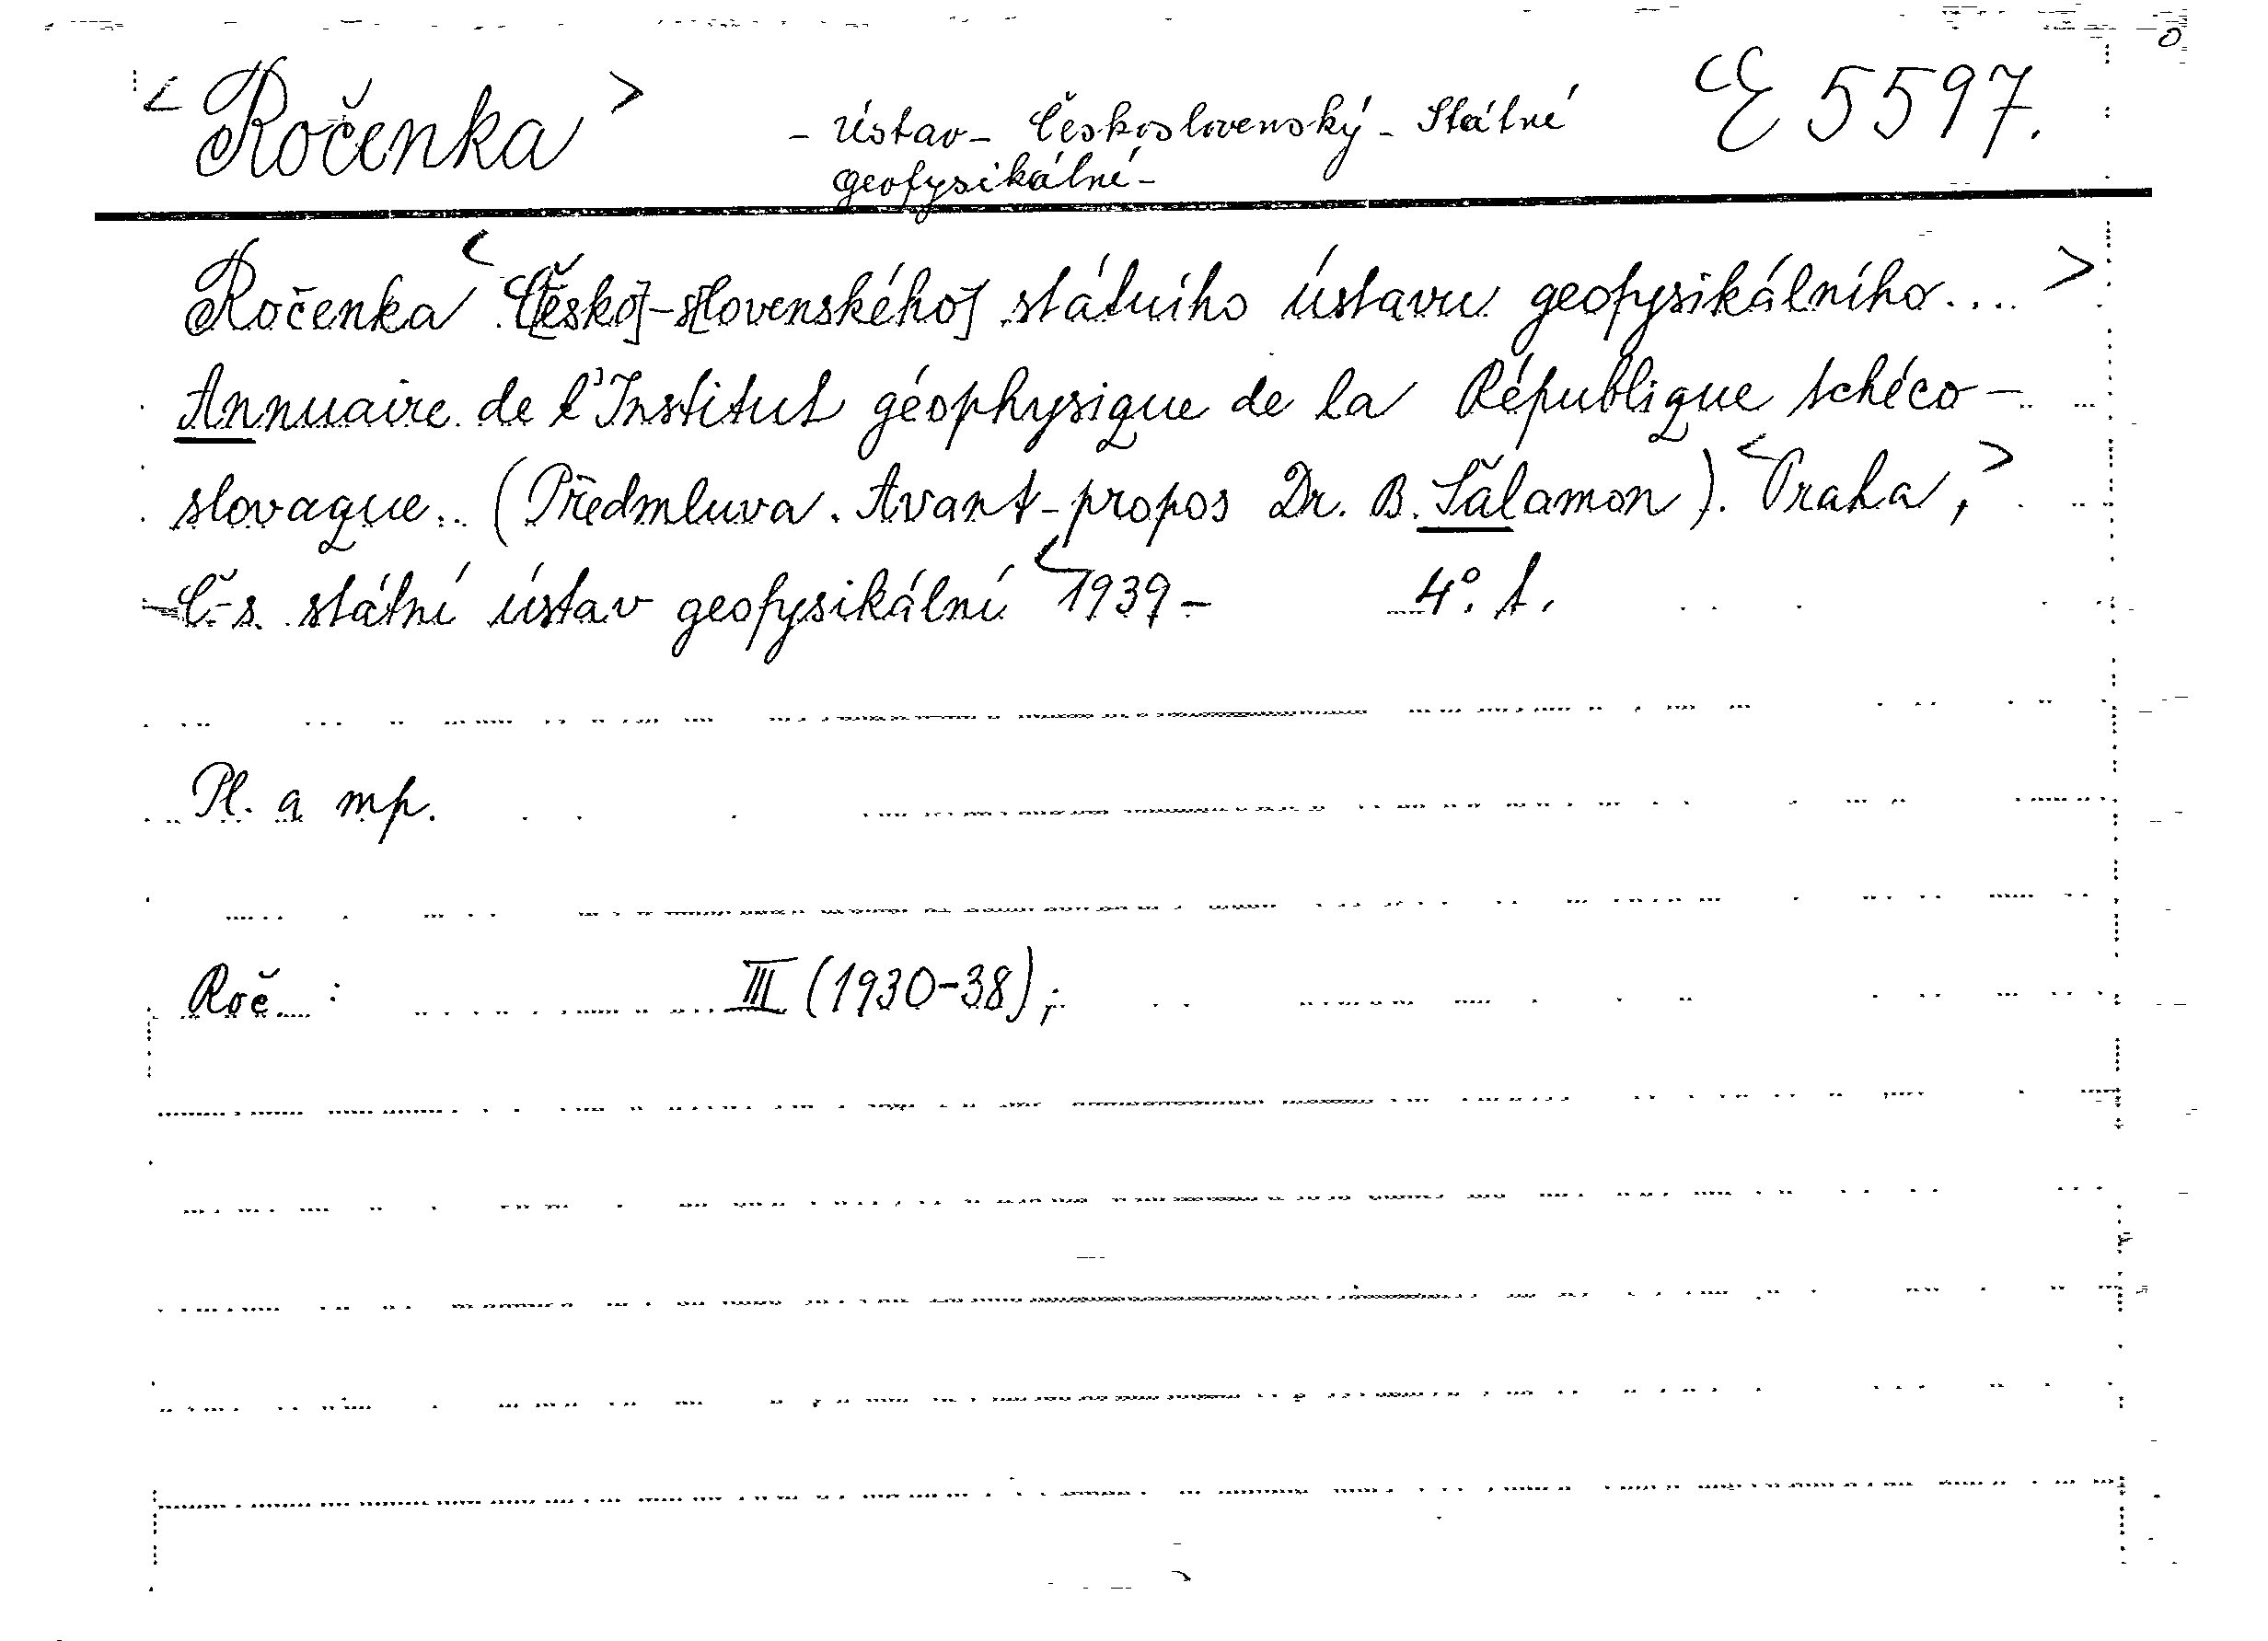 <Ročenka> - Ústav - Československý - Státní E 5597.
geofysikální -
Ročenka <Č[esko]-s[lovenského] státního ústavu geofysikálního....>
Annuaire de l'Institut géophysique de la République tchéco-
slovaque.. (Předmluva. Avant-propos Dr. B. Šalamon). <Praha,>
Č.-s. státní ústav geofysikální <1939- 4°. f.
Pl. a mp.
Roč. : III (1930-38);